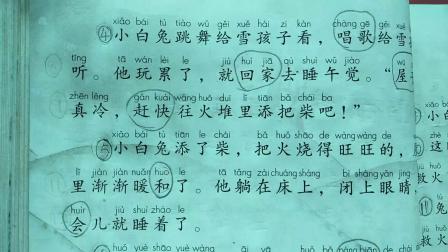 xiǎo bái tù tiào wǔ gěi xuě hái zi kàn chàng gē gěi xuě
④小白兔跳舞给雪孩子看，唱歌给雪
tīng tā wán lèi le jiù huí jiā qù shuì wǔ jiào wū
听。他玩累了，就回家去睡午觉。“屋
zhēn lěng gǎn kuài wǎng huǒ duī lǐ tiān bǎ chái ba
真冷，赶快往火堆里添把柴吧！”
xiǎo bái tù tiān le chái bǎ huǒ shāo de wàng wàng de
⑤小白兔添了柴，把火烧得旺旺的，
lǐ jiàn jiàn nuǎn huo le tā tǎng zài chuáng shàng bì shàng yǎn jīng
里渐渐暖和了。他躺在床上，闭上眼睛，
huìr jiù shuì zháo le
会儿就睡着了。
huǒ shāo de yuè wàng